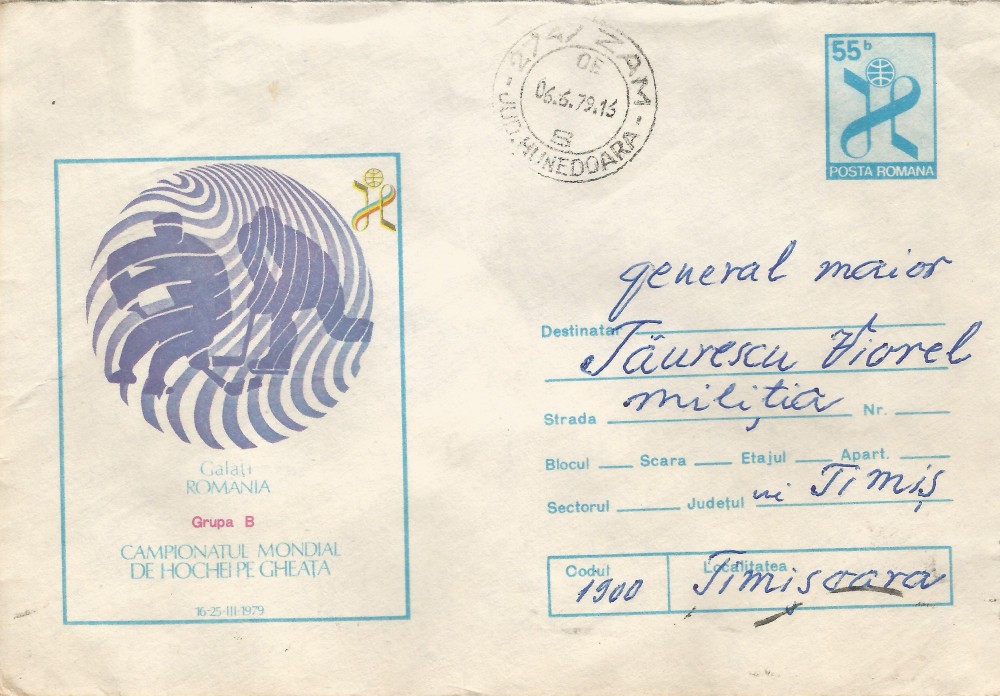 2747 ZAM
OE
06.6.79.16
JUD. HUNEDOARA
55 b
POSTA ROMANA
Galați
ROMANIA
Grupa B
CAMPIONATUL MONDIAL
DE HOCHEI PE GHEAȚA
16-25-III-1979
general maior
Destinatar
Tăurescu Viorel
Strada miliția Nr.
Blocul Scara Etajul Apart.
Sectorul Județul Timiș
Codul 1900 Localitatea Timișoara